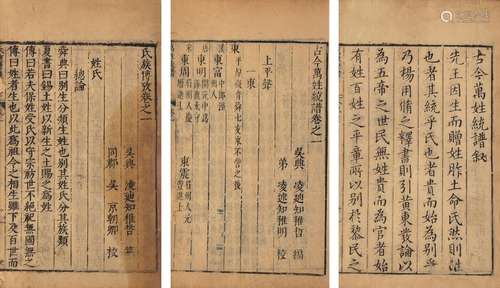 古今萬姓統譜叙
先王因生而賜姓胙土命氏然則
也者其統乎氏也貴而始為別乎
乃楊用脩之釋書則引黃東發論以
為五帝之世民無姓貴而為官者始
有姓百姓之平章所以別於黎民之
古今萬姓統譜卷之一
吳興 凌迪知稚哲
弟 凌述知稚明
上平聲
一東
東平原 角音 舜七友東不訾之後
東富
東明
東周
東震
氏族博攷卷之一
吳興 凌迪知稚哲 纂
同郡 吳京朝卿 校
姓氏
總論
舜典曰別生分類生姓也別其姓氏分其族類
夏書曰錫土姓以新生之土賜之為姓
傳曰若夫保姓受氏以守宗祊世不絕祀無國無之
傳曰姓者生也以此為祖令之相生雖下及百世而